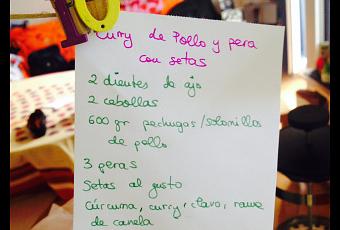 Curry de Pollo y pera
con setas
2 dientes de ajo
2 cebollas
600 gr pechugas/solomillos
de pollo
3 peras
Setas al gusto
Cúrcuma, curry, clavo, rama
de canela